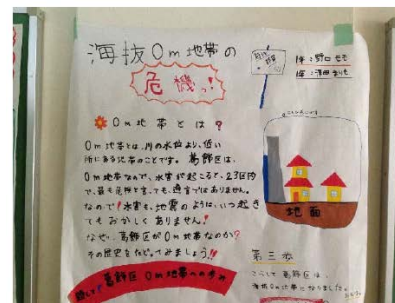 海抜0m地帯の
危機っ!
0m地帯とは?
0m地帯とは、川の水位より、低い
所にある地帯のことです。葛飾区は、
0m地帯なので、水害が起こると、23区内
で、最も危険と言っても、過言ではありません。
なので!水害も、地震のように、いつ起き
てもおかしくありません!!
なぜ、葛飾区が0m地帯なのか?
その歴史をたどってみましょう!!
葛飾区0m地帯への歩み
地面
第三歩
こうして葛飾区は、
海抜0m地帯となりました。